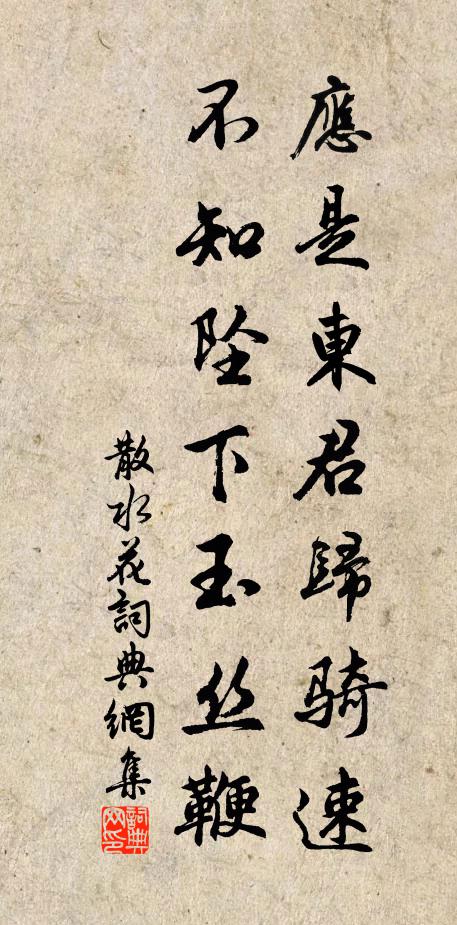 應是東君歸騎速
不知墜下玉丝鞭
散水花詞典網集
詞典网印